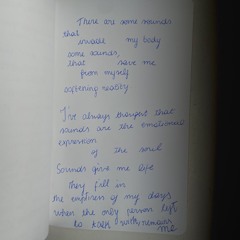 There are some sounds
that
invade my body
some sounds,
that save me
from myself
softening reality
I've always thought that
sounds are the emotional
expression
of the soul
Sounds give me life
They fill in
the emptiness of my days
when the only person left
to talk with remains
me